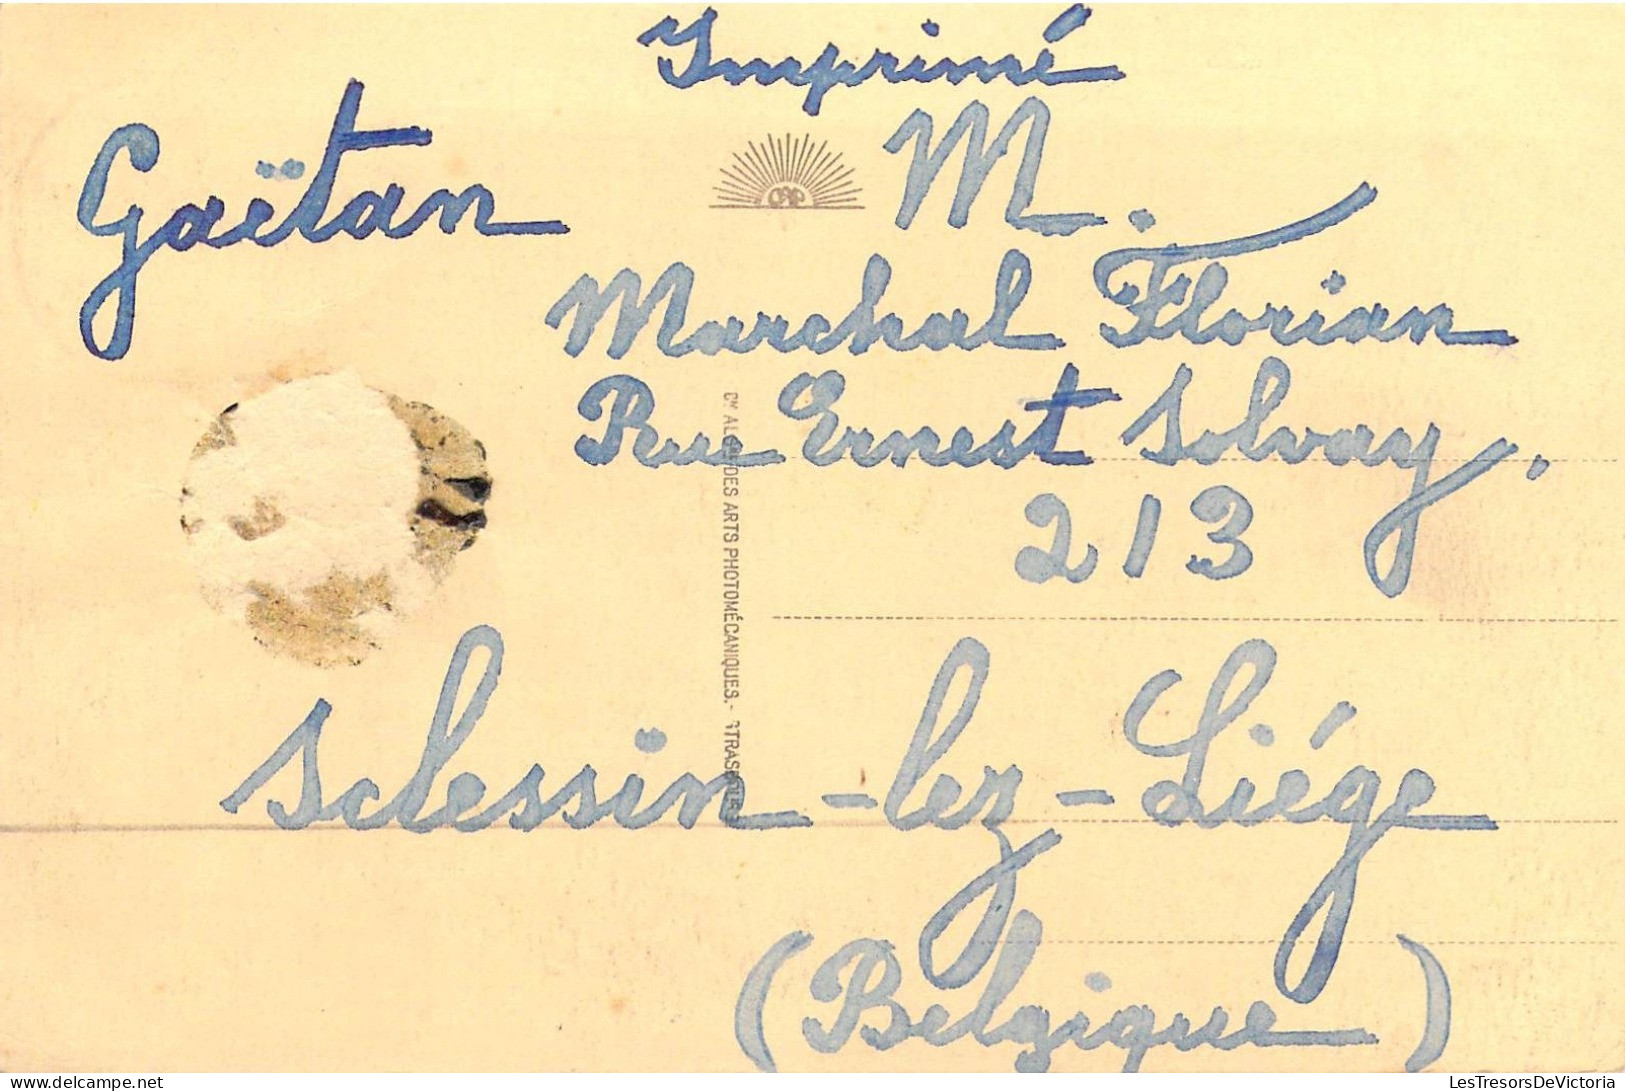 Imprimé
Gaëtan
M.
Marchal Florian
Rue Ernest Solvay.
213
Sclessin-lez-Liége
(Belgique)
Cie ALSne DES ARTS PHOTOMÉCANIQUES.- STRASBOURG
delcampe.net
LesTresorsDeVictoria